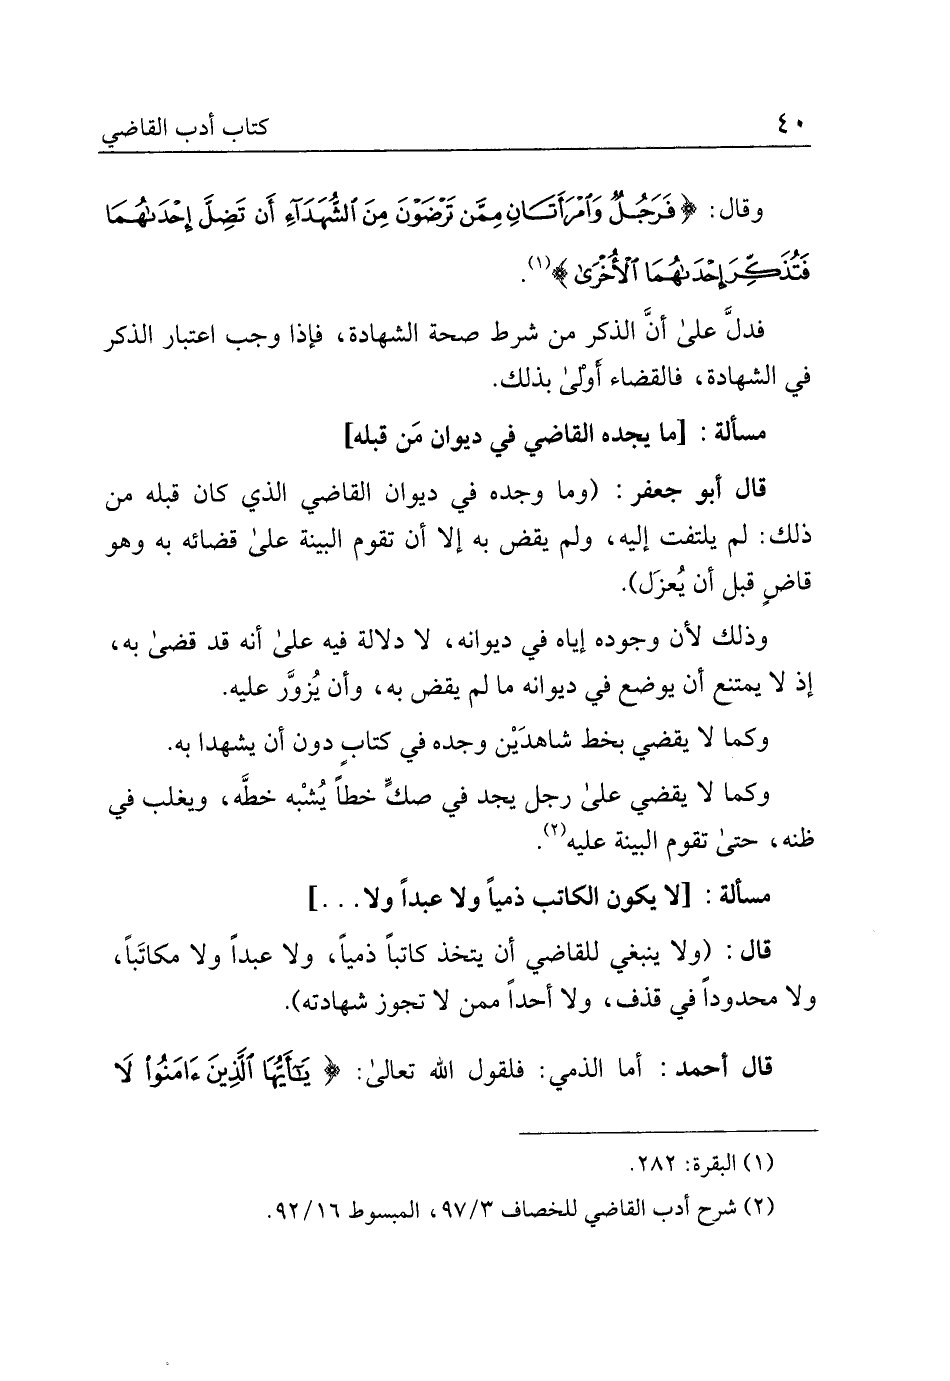 ٤٠ كتاب أدب القاضي
وقال: ﴿ فَرَجُلٌ وَٱمْرَأَتَانِ مِمَّن تَرْضَوْنَ مِنَ ٱلشُّهَدَآءِ أَن تَضِلَّ إِحْدَىٰهُمَا
فَتُذَكِّرَ إِحْدَىٰهُمَا ٱلْأُخْرَىٰ ﴾(١).
فدلَّ علىٰ أنَّ الذكر من شرط صحة الشهادة، فإذا وجب اعتبار الذكر
في الشهادة، فالقضاء أَوْلىٰ بذلك.
مسألة : [ما يجده القاضي في ديوان مَن قبله]
قال أبو جعفر : (وما وجده في ديوان القاضي الذي كان قبله من
ذلك: لم يلتفت إليه، ولم يقض به إلا أن تقوم البينة علىٰ قضائه به وهو
قاضٍ قبل أن يُعزَل).
وذلك لأن وجوده إياه في ديوانه، لا دلالة فيه علىٰ أنه قد قضىٰ به،
إذ لا يمتنع أن يوضع في ديوانه ما لم يقض به، وأن يُزوَّر عليه.
وكما لا يقضي بخط شاهدَيْن وجده في كتابٍ دون أن يشهدا به.
وكما لا يقضي علىٰ رجل يجد في صكٍّ خطاً يُشْبه خطَّه، ويغلب في
ظنه، حتىٰ تقوم البينة عليه(٢).
مسألة : [لا يكون الكاتب ذمياً ولا عبداً ولا. . . ]
قال : (ولا ينبغي للقاضي أن يتخذ كاتباً ذمياً، ولا عبداً ولا مكاتَباً،
ولا محدوداً في قذف، ولا أحداً ممن لا تجوز شهادته).
قال أحمد : أما الذمي: فلقول الله تعالىٰ: ﴿ يَـٰٓأَيُّهَا ٱلَّذِينَ ءَامَنُوا۟ لَا
(١) البقرة: ٢٨٢.
(٢) شرح أدب القاضي للخصاف ٩٧/٣، المبسوط ٩٢/١٦.